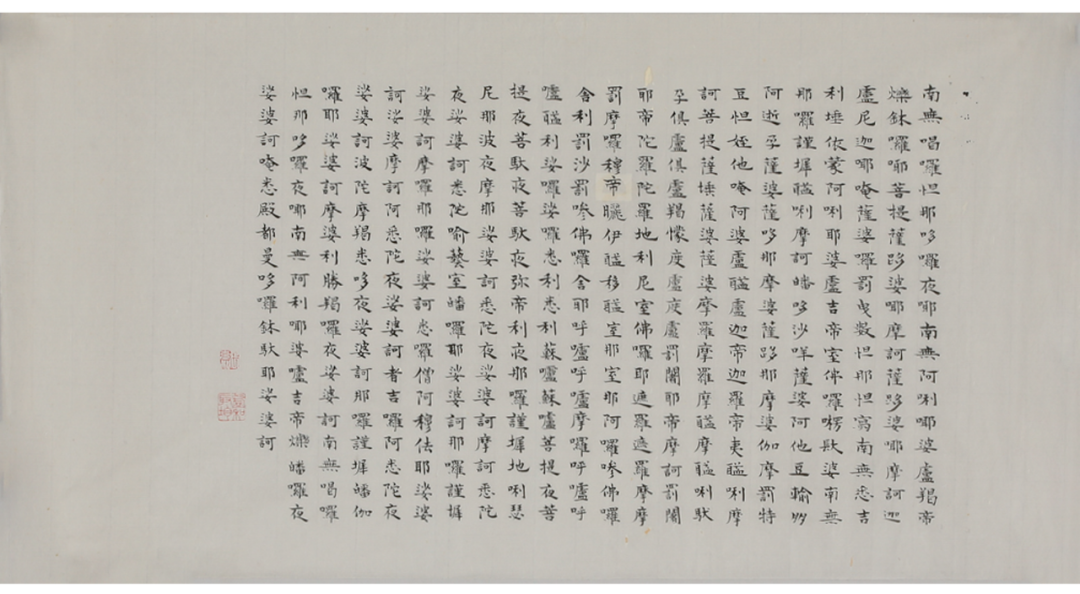 南無喝囉怛那哆囉夜耶南無阿唎哪婆盧羯帝
爍鉢囉耶菩提薩跢婆哪摩訶薩跢婆哪摩訶迦
盧尼迦哪唵薩婆囉罰曳数怛那怛寫南無悉吉
利埵依蒙阿唎耶婆盧吉帝室佛囉楞馱婆南無
那囉謹墀醯唎摩訶皤哆沙咩薩婆阿他豆輸朋
阿逝孕薩婆薩哆那摩婆薩跢那摩婆伽摩罰特
豆怛姪他唵阿婆盧醯盧迦帝迦羅帝夷醯唎摩
訶菩提薩埵薩婆薩婆摩羅摩羅摩醯摩醯唎馱
孕俱盧俱盧羯懞度盧度盧罰闍耶帝摩訶罰闍
耶帝陀羅陀羅地利尼室佛囉耶遮羅遮羅摩摩
罰摩囉穆帝曬伊醯移醯室那室那阿囉嘇佛囉
舍利罰沙罰嘇佛囉舍耶呼嚧呼嚧摩囉呼嚧呼
嚧醯利娑囉娑囉悉利悉利蘇嚧蘇嚧菩提夜菩
提夜菩馱夜菩馱夜弥帝利夜那囉謹墀地唎瑟
尼那波夜摩那娑婆訶悉陀夜娑婆訶摩訶悉陀
夜娑婆訶悉陀喻藝室皤囉耶娑婆訶那囉謹墀
娑婆訶摩囉那囉娑婆訶悉囉僧阿穆佉耶娑婆
訶娑婆摩訶阿悉陀夜娑婆訶者吉囉阿悉陀夜
娑婆訶波陀摩羯悉哆夜娑婆訶那囉謹墀皤伽
囉耶娑婆訶摩婆利勝羯囉夜娑婆訶南無喝囉
怛那哆囉夜哪南無阿利哪婆嚧吉帝爍皤囉夜
娑婆訶唵悉殿都曼哆囉鉢馱耶娑婆訶